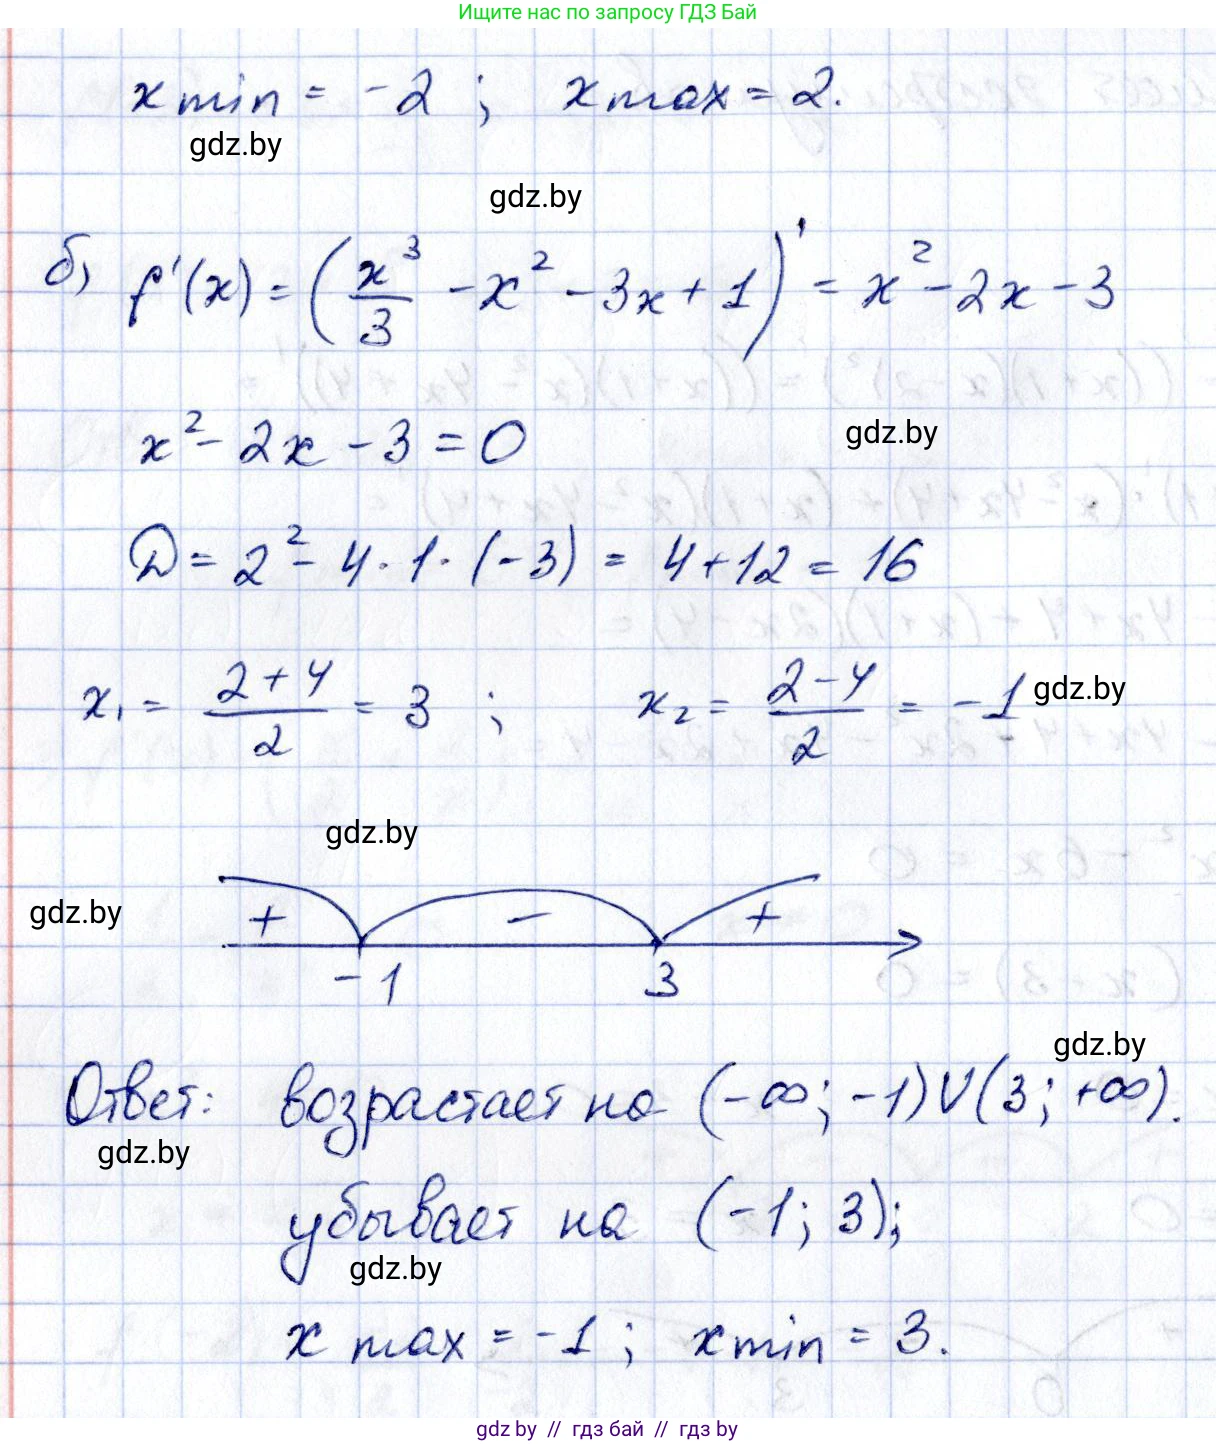 Ищите нас по запросу ГДЗ Бай
x min = -2 ; x max = 2.
gdz.by
gdz.by
б) f'(x) = (x³/3 - x² - 3x + 1)' = x² - 2x - 3
x² - 2x - 3 = 0
gdz.by
D = 2² - 4 · 1 · (-3) = 4 + 12 = 16
x₁ = (2+4)/2 = 3 ; x₂ = (2-4)/2 = -1
gdz.by
gdz.by
gdz.by
+ - +
-1 3
gdz.by
Ответ: возрастает на (-∞; -1) U (3; +∞).
gdz.by
убывает на (-1; 3);
gdz.by
x max = -1 ; x min = 3.
gdz by // гдз бай // гдз by